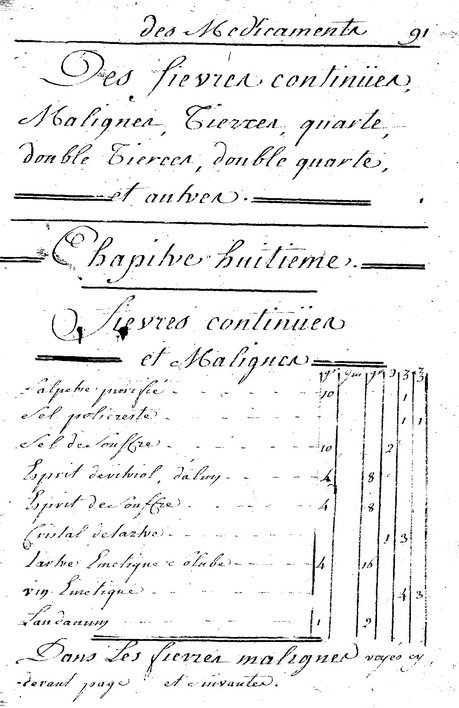 des Medicaments 91
Des fievres continües,
Malignes, Tierces, quarte,
double Tierces, double quarte,
et autres.
Chapitre huitieme.
fievres continües
et Malignes
Salpetre purifié 10 1
Sel policreste 1 1
Sel de Souffre 10 2
Esprit de vitriol, d'alun 4 8
Esprit de Souffre 4 8
Cristal de tartre 1 3
Tartre Emetique soluble 4 16
vin Emetique 4 3
Laudanum 1 2
Dans Les fievres malignes voyés cy
devant page et suivantes.